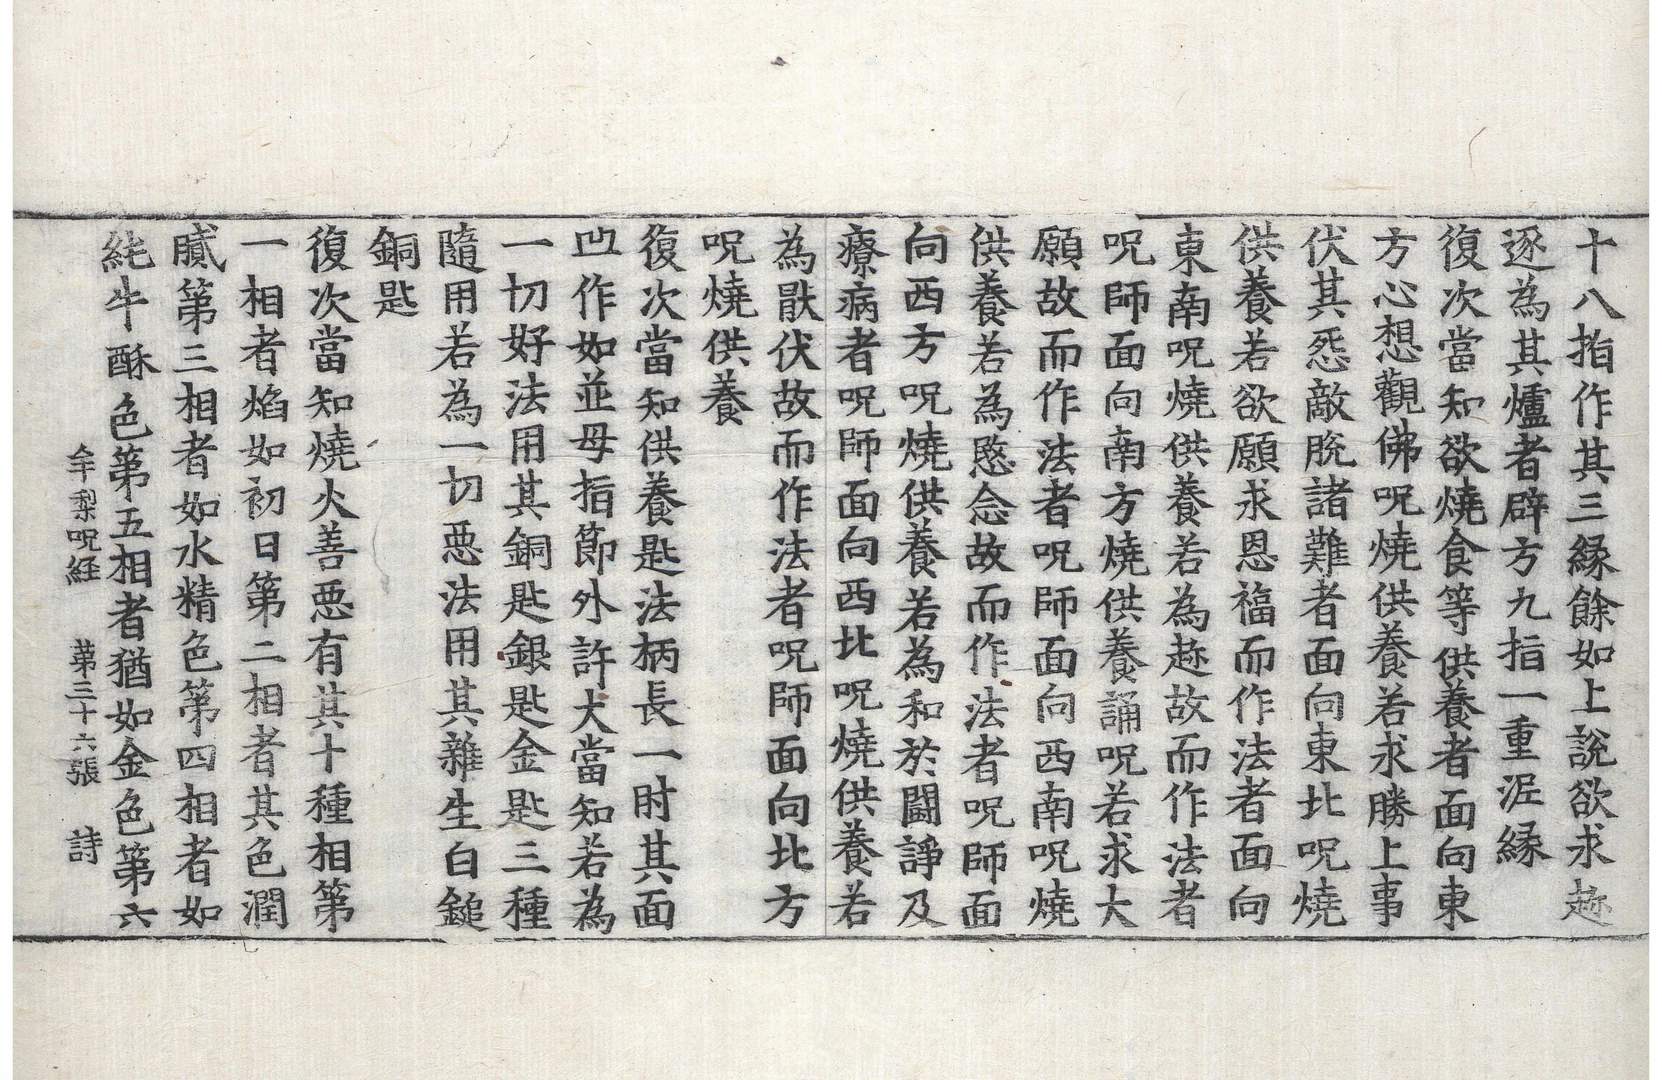 十八指作其三縁餘如上說欲求趂
逐為其爐者辟方九指一重渥縁
復次當知欲燒食等供養者面向東
方心想觀佛呪燒供養若求勝上事
伏其怨敵脫諸難者面向東北呪燒
供養若欲願求恩福而作法者面向
東南呪燒供養若為趂故而作法者
呪師面向南方燒供養誦呪若求大
願故而作法者呪師面向西南呪燒
供養若為愍念故而作法者呪師面
向西方呪燒供養若為和於鬪諍及
療病者呪師面向西北呪燒供養若
為猒伏故而作法者呪師面向北方
呪燒供養
復次當知供養匙法柄長一肘其面
凹作如並母指節外許犬當知若為
一切好法用其銅匙銀匙金匙三種
隨用若為一切惡法用其雜生白鎚
銅匙
復次當知燒火善惡有其十種相第
一相者焰如初日第二相者其色潤
膩第三相者如水精色第四相者如
純牛酥色第五相者猶如金色第六
牟梨呪経 第三十六張 詩